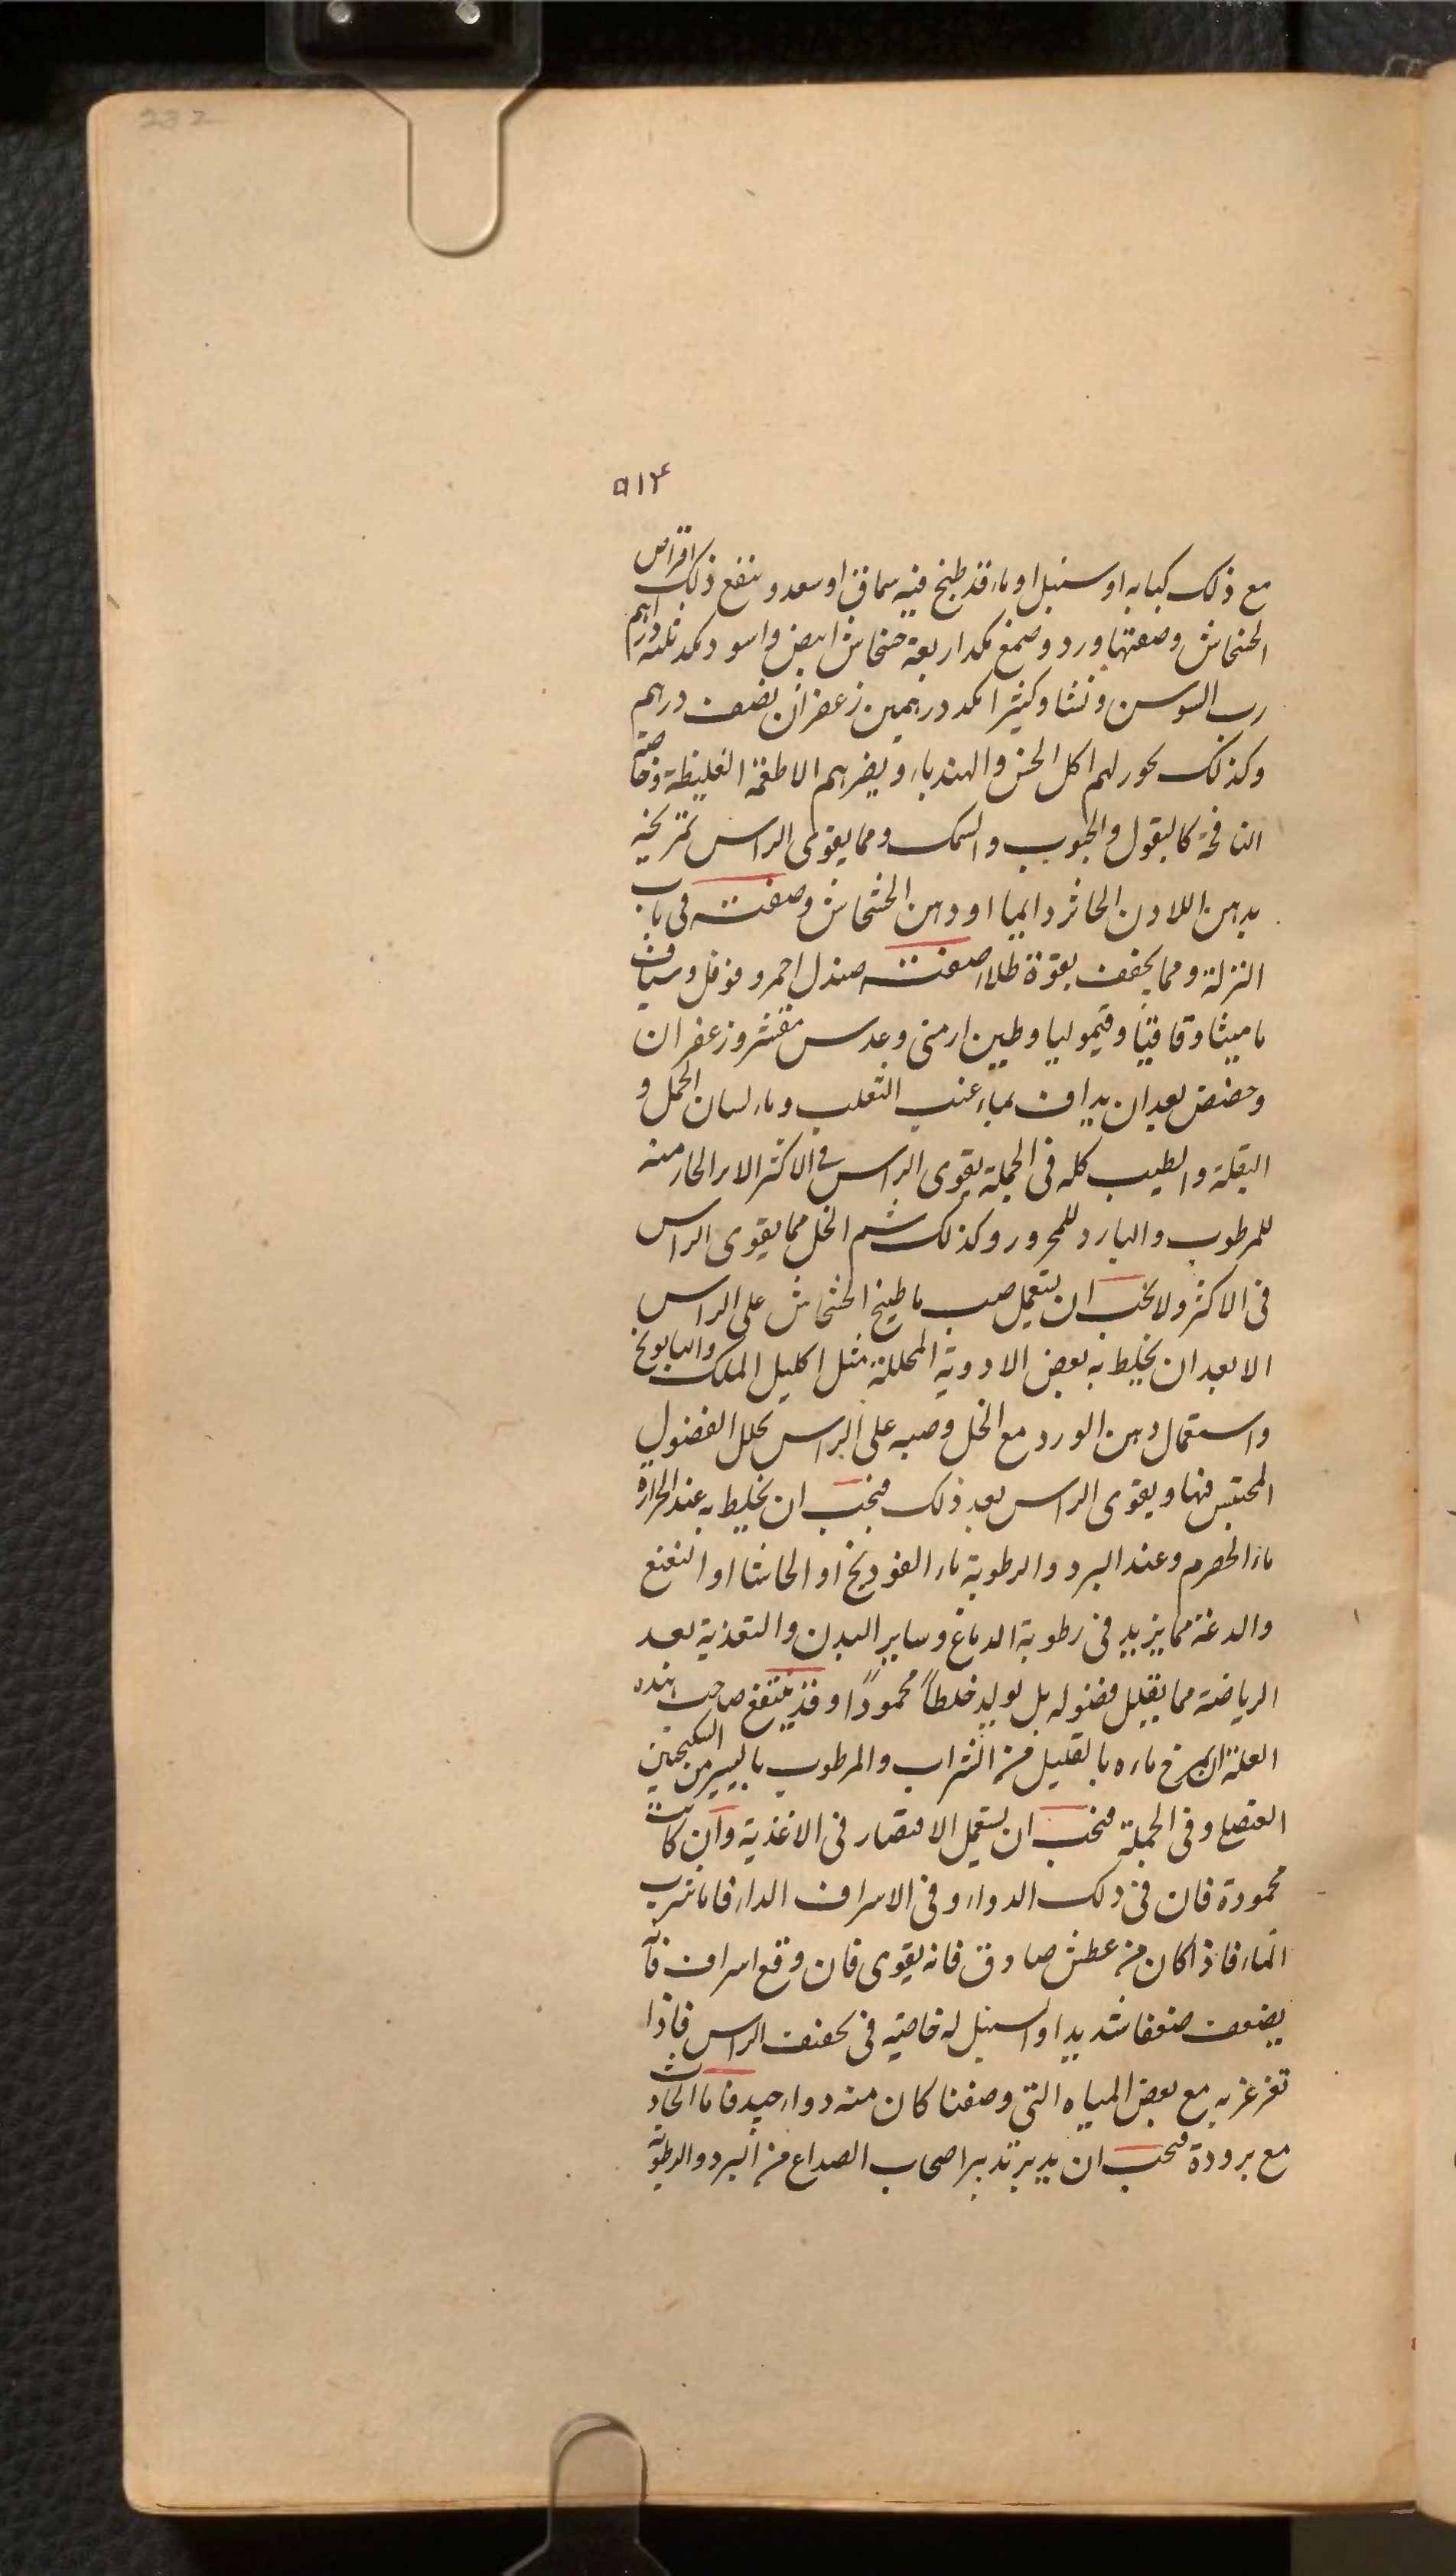 232
۵۱۴
مع ذلك كبابه او سنبل او ماء قد طبخ فيه سماق او سعد و ينفع ذلك اقراص
الخشخاش وصفتها ورد وصمغ مكد اربعة خشخاش ابيض واسود مكد ثلثه دراهم
رب السوسن و نشا وكثيرا مكد درهمين زعفران نصف درهم
وكذلك يجوز لهم اكل الخس والهندباء ويضرهم الاطعمة الغليظة وخاصة
النافخة كالبقول والحبوب والسمك ومما يقوى الراس تمريخه
بدهن اللادن الخاثر دايما او دهن الخشخاش وصفته فى باب
النزلة ومما يخفف بقوة طلاء صفته صندل احمر وفوفل وشياف
ماميثا وقاقيا وقيموليا وطين ارمنى وعدس مقشر وزعفران
وحضض بعد ان يداف بماء عنب الثعلب وماء لسان الحمل و
البقلة والطيب كله فى الجملة يقوى الراس فى الاكثر الا ان الحار منه
للمرطوب والبارد للمحرور وكذلك شم الخل مما يقوى الراس
فى الاكثر ولا يجب ان يستعمل صب ما طبخ الخشخاش على الراس
الا بعد ان يخلط به بعض الادوية المحللة مثل اكليل الملك والبابونج
واستعمال دهن الورد مع الخل وصبه على الراس يحلل الفضول
المحتبس فيها ويقوى الراس بعد ذلك فيجب ان يخلط به عند الحرارة
ماء الحصرم وعند البرد والرطوبة ماء الفودنج او الحاشا او النعنع
والدعة مما يزيد فى رطوبة الدماغ وساير البدن والتغذية بعد
الرياضة مما يقلل فضوله بل يولد خلطاً محموداً وقد ينتفع صاحب هذه
العلة ان يمزج ماءه بالقليل من الشراب والمرطوب باليسير من السكنجبين
العنصلى وفى الجملة فيجب ان يستعمل الاقتصار فى الاغذية وان كانت
محمودة فان فى ذلك الدواء وفى الاسراف الداء فاما شرب
الماء فاذا كان من عطش صادق فانه يقوى فان وقع اسراف فانه
يضعف ضعفا شديدا والسنبل له خاصية فى تجفيف الراس فاذا
تغرغر به مع بعض المياه التى وصفنا كان منه دواء جيد فاما الحادث
مع برودة فيجب ان يدبر تدبير اصحاب الصداع من البرد والرطوبة